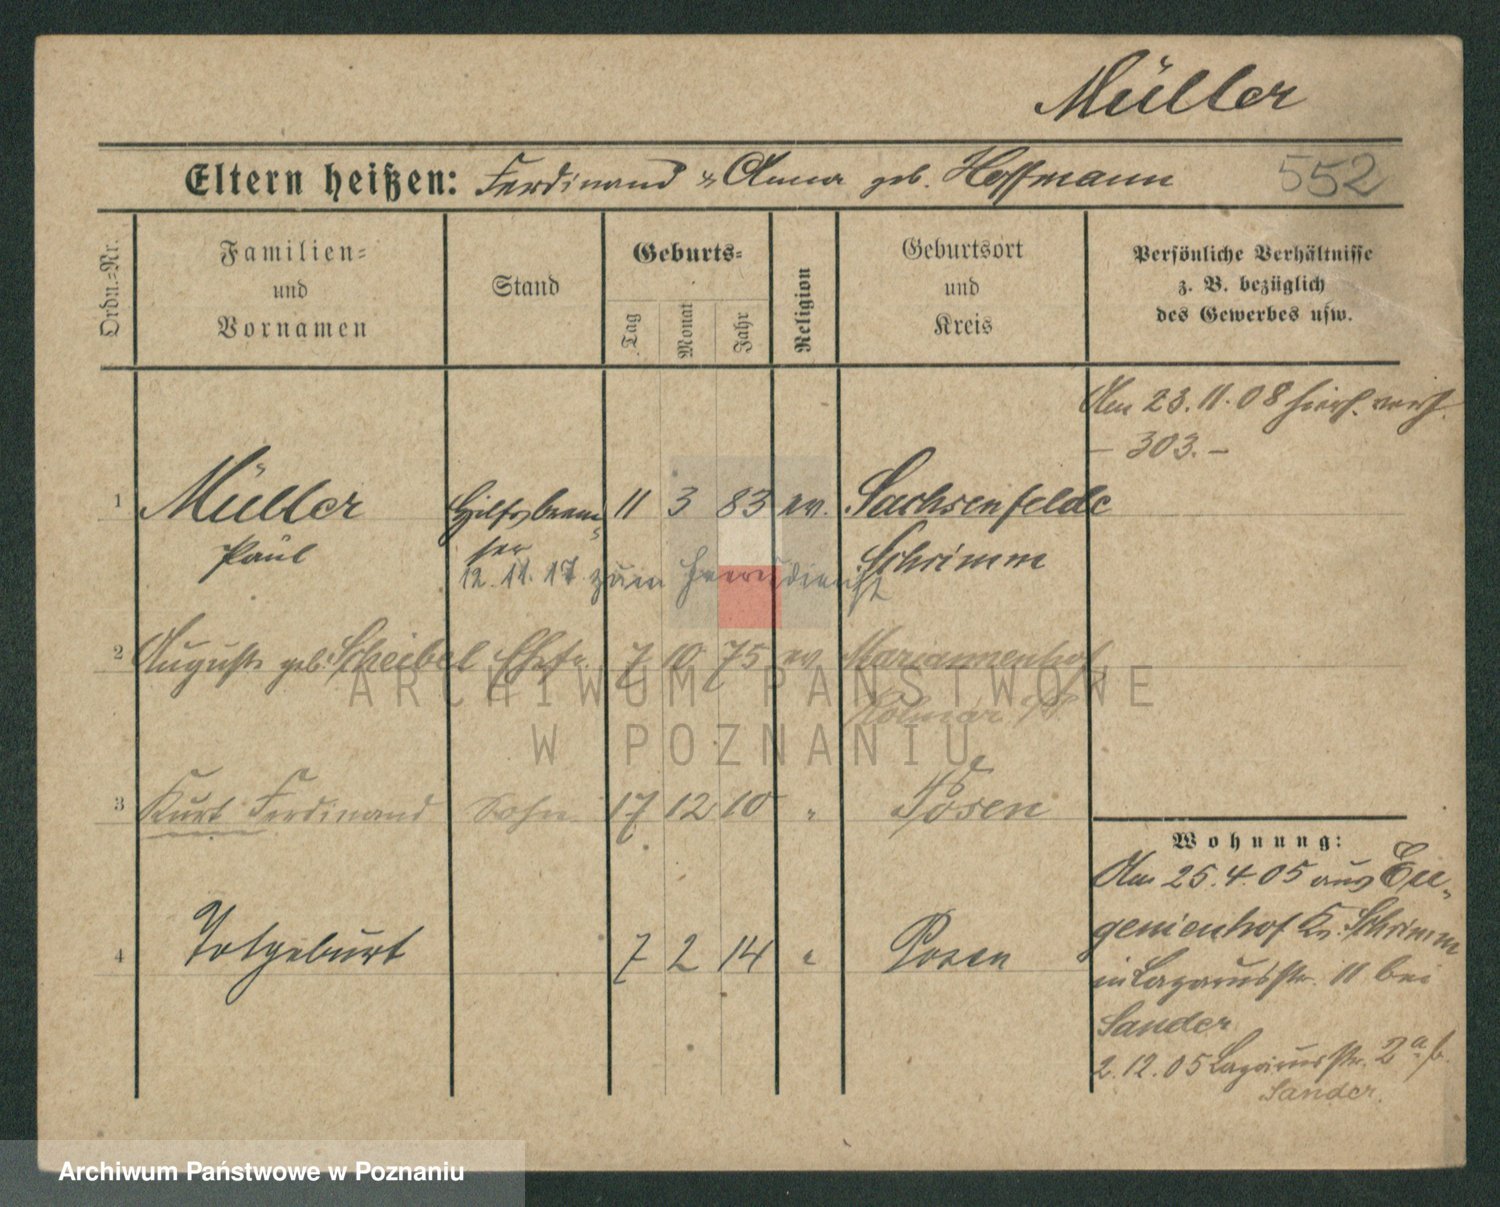 Müller
Eltern heißen: Ferdinand u Anna geb. Hoffmann 552
Ordn.=Nr.
Familien=
und
Vornamen
Stand
Geburts=
Tag
Monat
Jahr
Religion
Geburtsort
und
Kreis
Persönliche Verhältnisse
z. B. bezüglich
des Gewerbes usw.
Am 23.11.08 hierf. verh.
- 303. -
1 Müller Hilfsbrem= 11 3 83 ev. Sachsenfelde
Paul ser Schrimm
12. 11. 17 zum Heeresdienst
2 Auguste geb. Scheibel Ehefr. 7 10 75 ev Mariannenhof
Kolmar
3 Kurt Ferdinand Sohn 17 12 10 " Posen
4 Totgeburt 7 2 14 " Posen
Wohnung:
Am 25.4.05 aus Eu=
genienhof Kr. Schrimm
in Lazarusstr. 11 bei
Sander
2.12.05 Lazarusstr. 2a b.
Sander.
ARCHIWUM PAŃSTWOWE
W POZNANIU
Archiwum Państwowe w Poznaniu